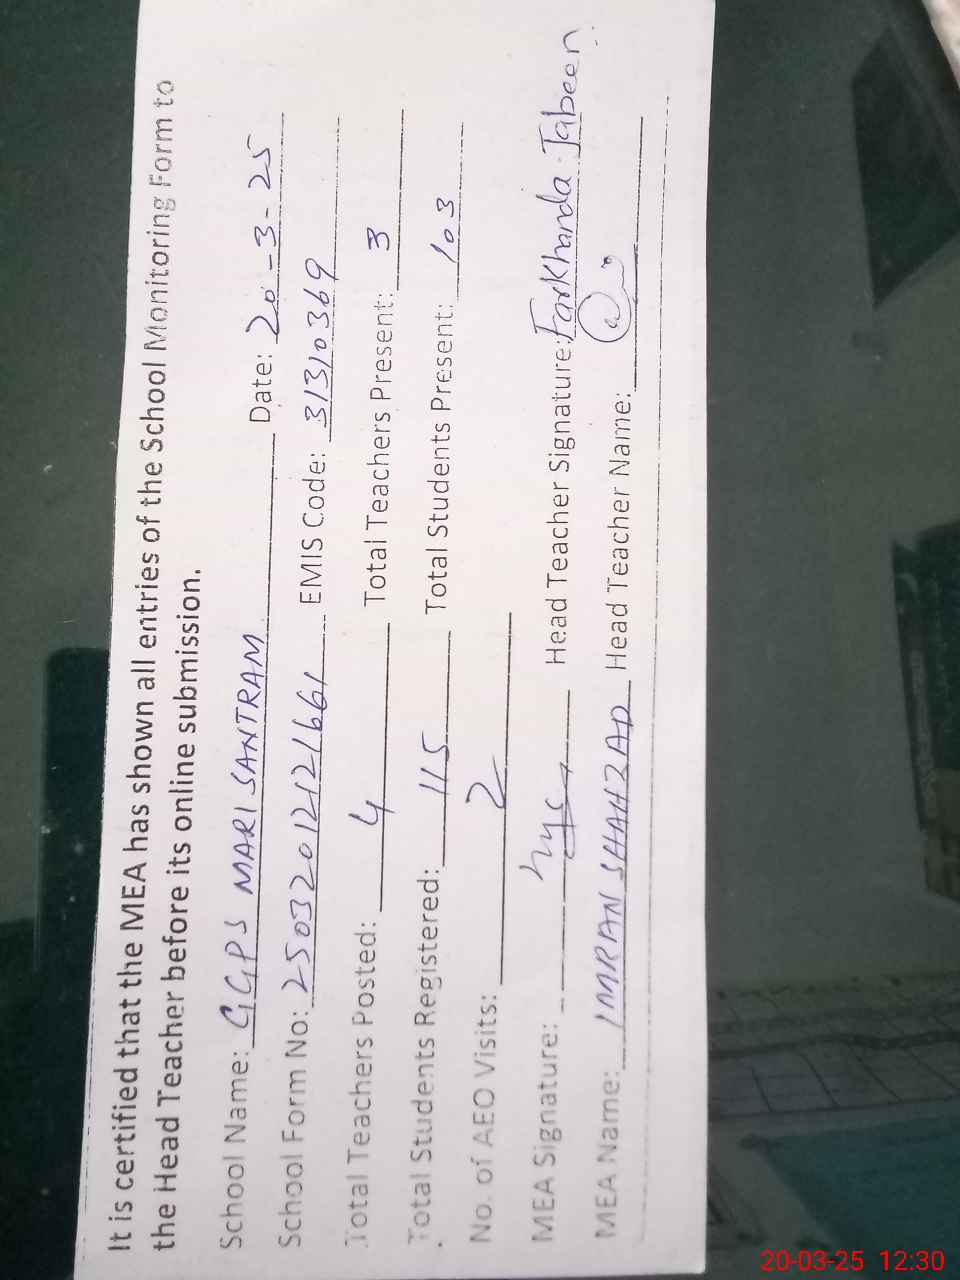 It is certified that the MEA has shown all entries of the School Monitoring Form to
the Head Teacher before its online submission.
School Name: GGPS MARI SANTRAM Date: 20-3-25
School Form No: 25032012121661 EMIS Code: 31310369
Total Teachers Posted: 4 Total Teachers Present: 3
Total Students Registered: 115 Total Students Present: 103
No. of AEO Visits: 2
MEA Signature: Head Teacher Signature: Farkhanda Jabeen
MEA Name: IMRAN SHAHZAD Head Teacher Name:
20-03-25 12:30